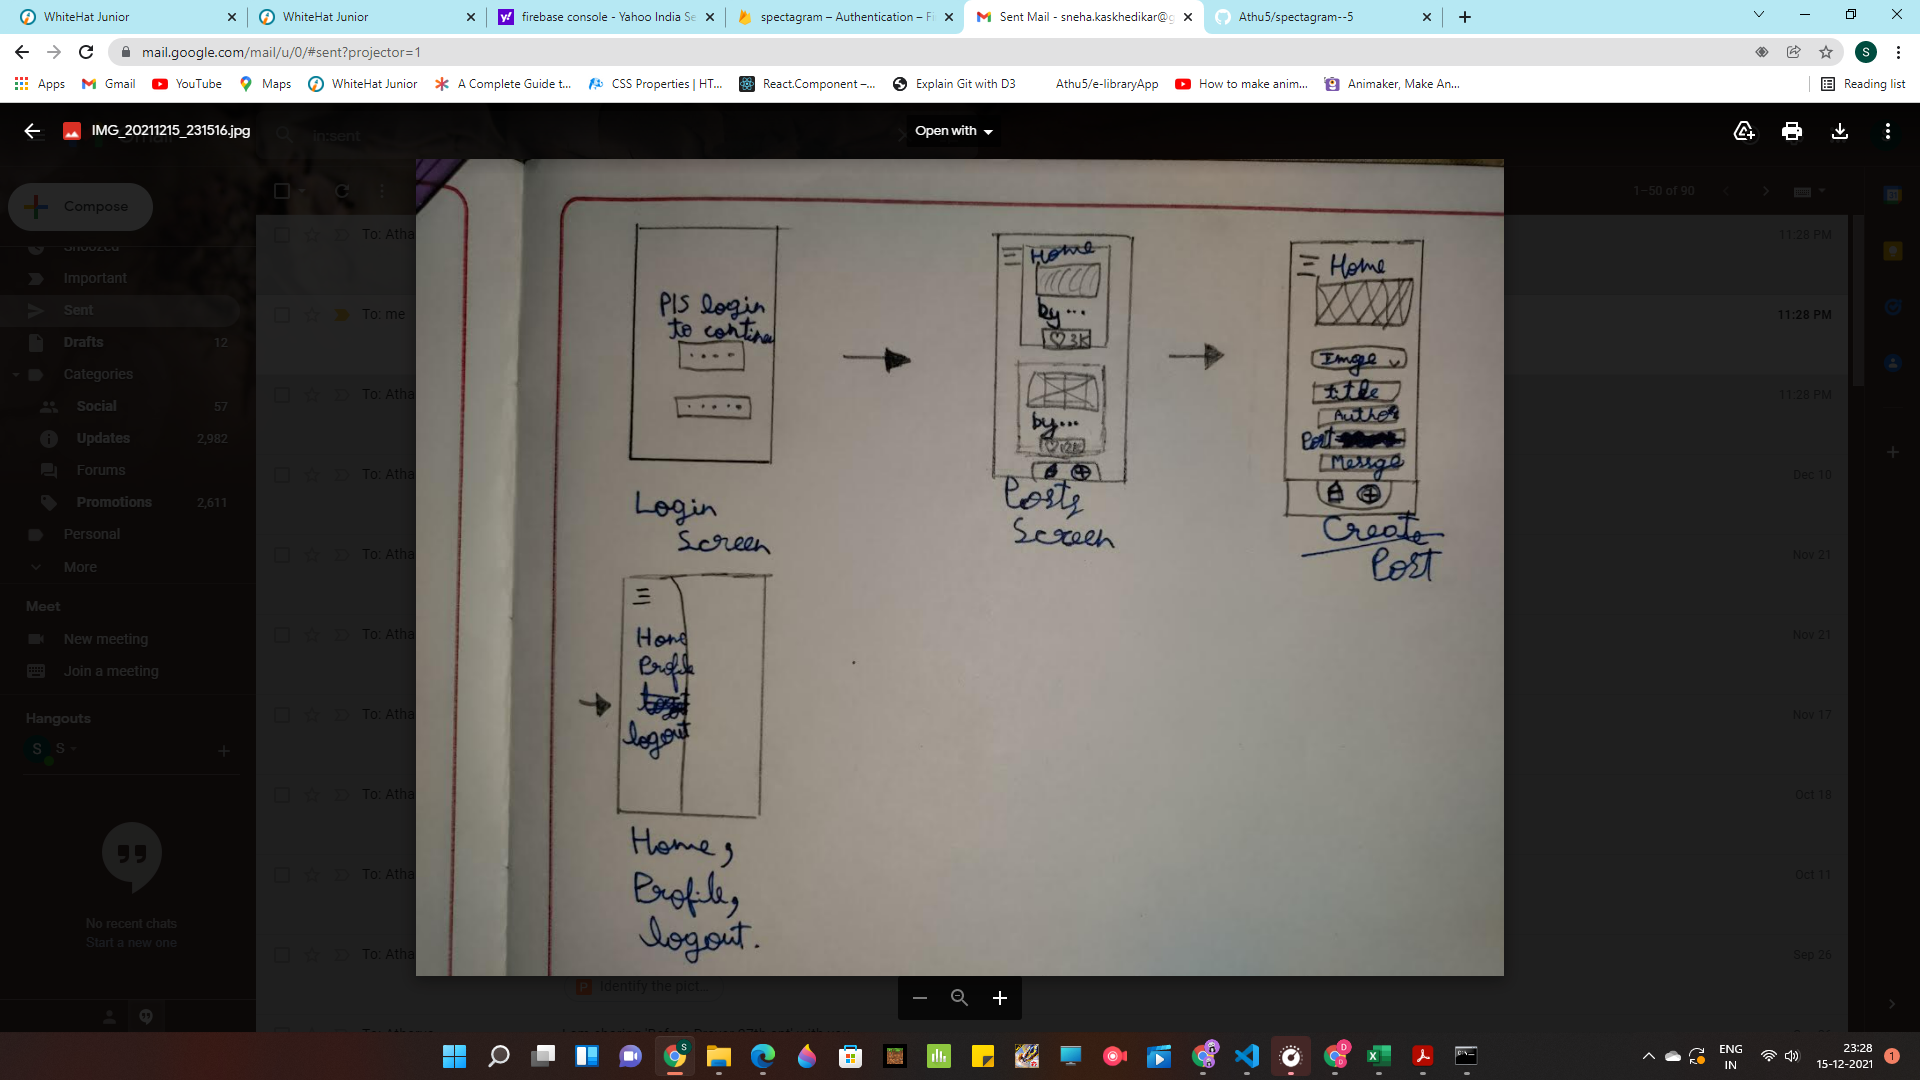 WhiteHat Junior
WhiteHat Junior
firebase console - Yahoo India Se
spectagram – Authentication – Fi
Sent Mail - sneha.kaskhedikar@g
Athu5/spectagram--5
mail.google.com/mail/u/0/#sent?projector=1
S
Apps
Gmail
YouTube
Maps
WhiteHat Junior
A Complete Guide t...
CSS Properties | HT...
React.Component –...
Explain Git with D3
Athu5/e-libraryApp
How to make anim...
Animaker, Make An...
Reading list
IMG_20211215_231516.jpg
in:sent
Open with
Compose
1–50 of 90
Snoozed
Important
Sent
Drafts 12
Categories
Social 57
Updates 2,982
Forums
Promotions 2,611
Personal
More
Meet
New meeting
Join a meeting
Hangouts
S
S
No recent chats
Start a new one
To: Atha 11:28 PM
To: me 11:28 PM
To: Atha 11:28 PM
To: Atha Dec 10
To: Atha Nov 21
To: Atha Nov 21
To: Atha Nov 17
To: Atha Oct 18
To: Atha Oct 11
To: Atha Sep 26
Identify the pict...
Pls login
to continue
Login
Screen
Home
by...
3K
by...
2K
Posts
Screen
Home
Image
title
Author
Post
Messge
Create
Post
Home
Profile
logout
Home,
Profile,
logout.
ENG
IN
23:28
15-12-2021
1